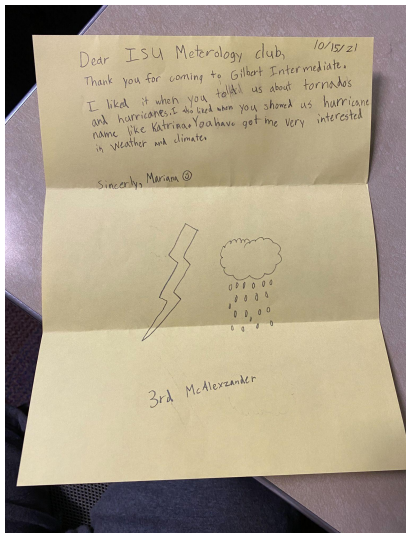 10/15/21
Dear ISU Meterology club,
Thank you for coming to Gilbert Intermediate.
I liked it when you us about tornados
and hurricanes. I also liked when you showed us hurricane
name like Katrina. You have got me very interested
in weather and climate.
Sincerly, Mariana ☺
3rd McAlexzander